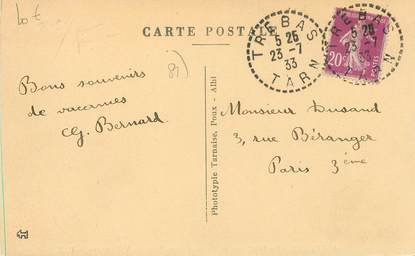 CARTE POSTALE
TREBAS
5 25
23 -7
33
TARN
TREBAS
20c
Bons souvenirs
de vacances
G. Bernard
Phototypie Tarnaise, Poux - Albi
Monsieur Durand
3, rue Béranger
Paris 3ème